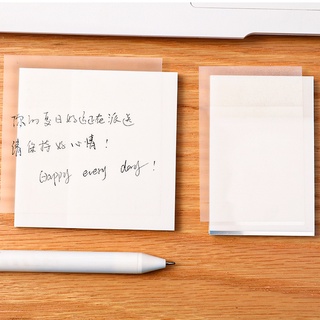 你的夏日好运正在派送
请保持好心情！
Happy every day!